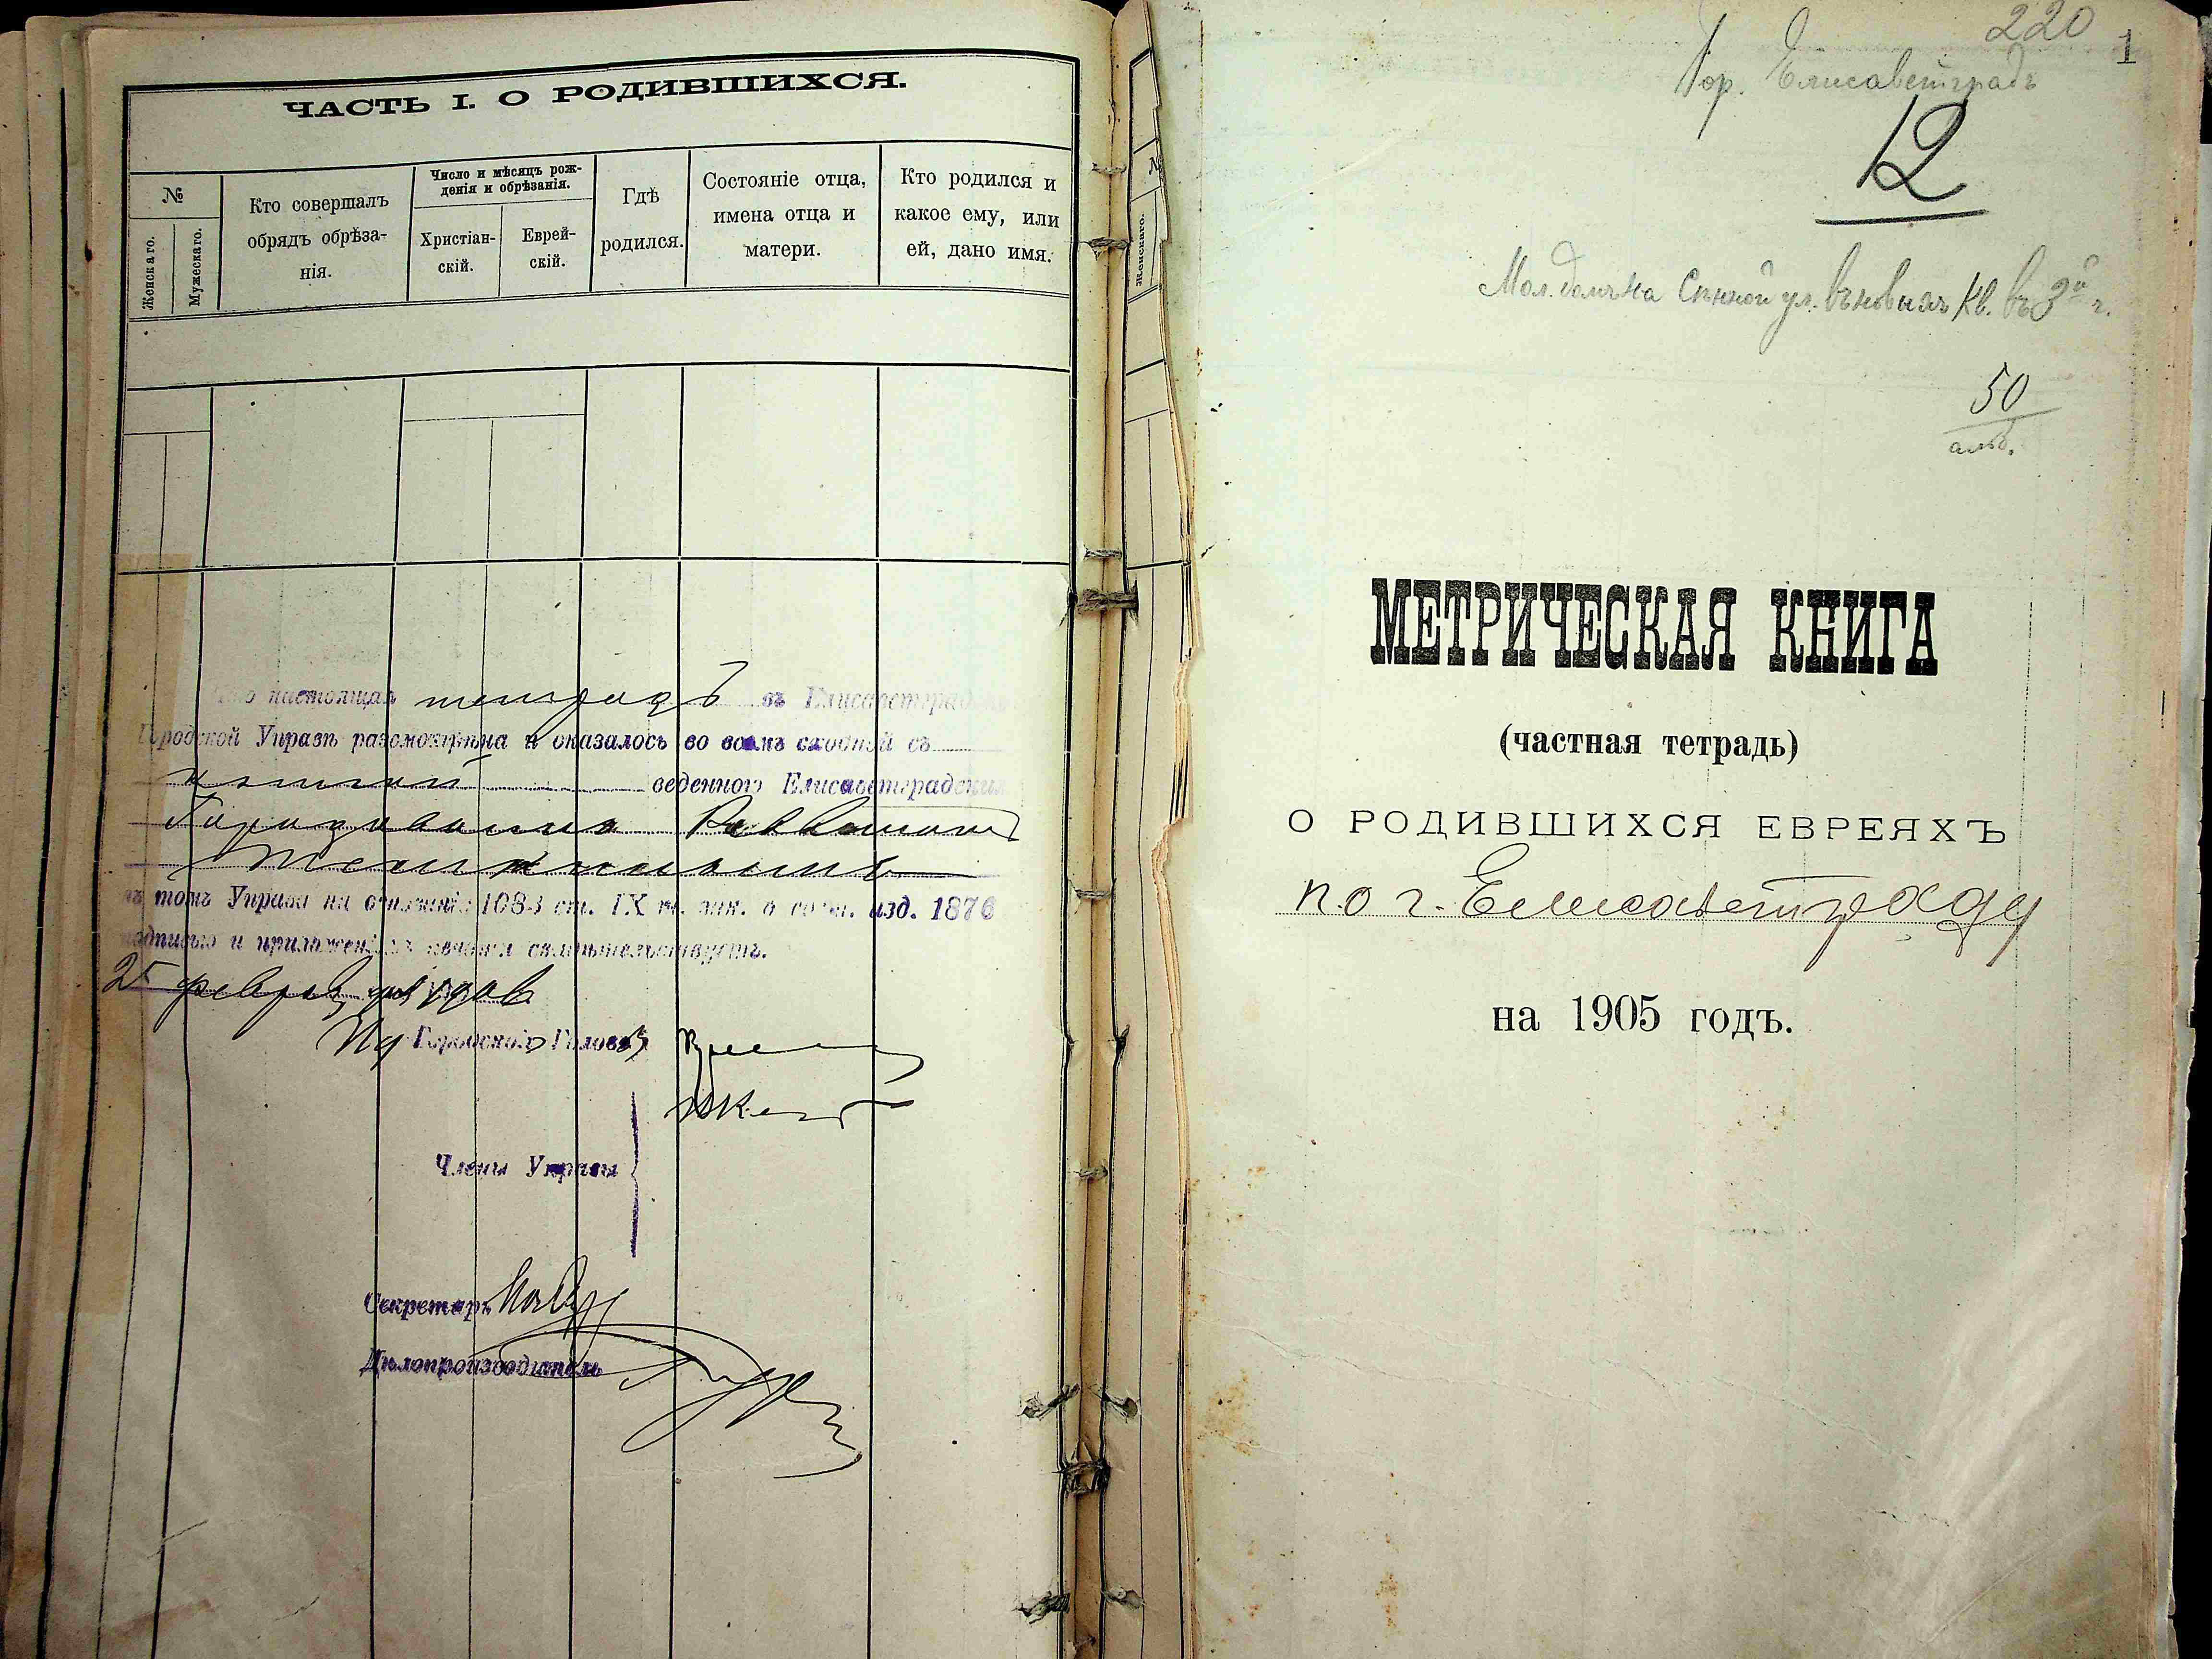 ЧАСТЬ I. О РОДИВШИХСЯ.
№
Женскаго.
Мужескаго.
Кто совершалъ
обрядъ обрѣза-
нія.
Число и мѣсяцъ рож-
денія и обрѣзанія.
Христіан-
скій.
Еврей-
скій.
Гдѣ
родился.
Состояніе отца,
имена отца и
матери.
Кто родился и
какое ему, или
ей, дано имя.
настоящая тетрадь въ Елисаветград
Городской Управѣ разсмотрѣна и оказалось во всемъ сходной съ
книгой веденного Елисаветградским
Раввином
томъ Управа на основаніи 1083 ст. IX т. зак. о сост. изд. 1876
подписью и приложеніемъ печати свидѣтельствуетъ.
25 февраля 1906
Ид Городского Головы
Члены Управы
Секретарь
Дѣлопроизводитель
№
Женскаго.
220
1
Гор. Елисаветградъ
12
Мол. домъ на Сѣнной ул. въ новыхъ кв. въ 3й ч.
50
МЕТРИЧЕСКАЯ КНИГА
(частная тетрадь)
О РОДИВШИХСЯ ЕВРЕЯХЪ
по г. Елисаветграду
на 1905 годъ.